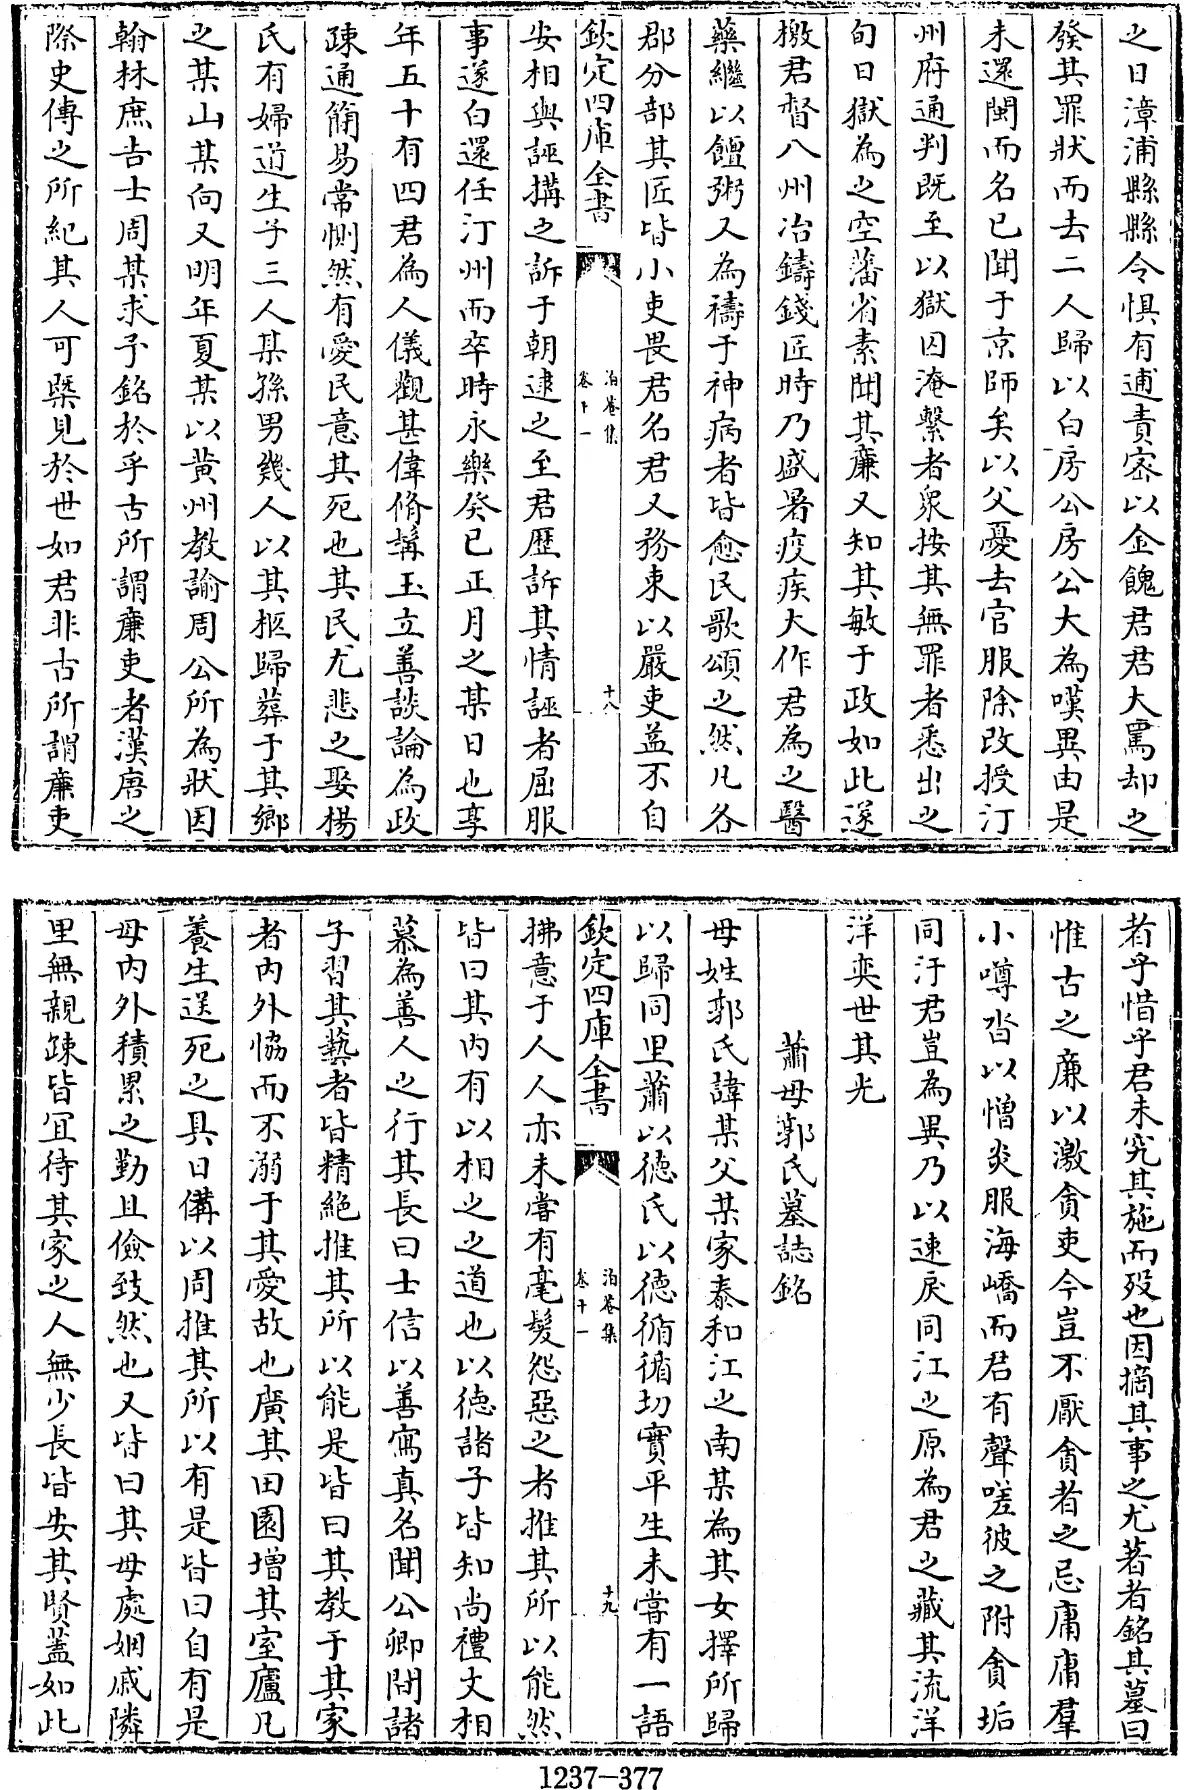 之日漳浦縣縣令懼有逋責宻以金餽君君大罵却之
發其罪狀而去二人歸以白房公房公大為嘆異由是
未還閩而名已聞于京師矣以父憂去官服除改授汀
州府通判既至以獄囚淹繫者衆按其無罪者悉出之
旬日獄為之空藩省素聞其廉又知其敏于政如此遂
檄君督八州冶鑄錢匠時乃盛暑疫疾大作君為之醫
藥繼以饘粥又為禱于神病者皆愈民歌頌之然凡各
郡分部其匠皆小吏畏君名君又務束以嚴吏益不自
欽定四庫全書
泊菴集
卷十一
十八
安相與誣搆之訴于朝逮之至君歷訴其情誣者屈服
事遂白還任汀州而卒時永樂癸巳正月之某日也享
年五十有四君為人儀觀甚偉脩髯玉立善談論為政
疎通簡易常惻然有愛民意其死也其民尤悲之娶楊
氏有婦道生子三人某孫男幾人以其柩歸葬于其鄉
之某山某向又明年夏某以黄州教諭周公所為狀因
翰林庶吉士周某求予銘於乎古所謂廉吏者漢唐之
際史傳之所紀其人可槩見於世如君非古所謂廉吏
者乎惜乎君未究其施而殁也因摘其事之尤著者銘其墓曰
惟古之廉以激貪吏今豈不厭貪者之忌庸庸羣
小噂沓以憎炎服海嶠而君有聲嗟彼之附貪垢
同汙君豈為異乃以速戾同江之原為君之藏其流洋
洋奕世其光
蕭母郭氏墓誌銘
母姓郭氏諱某父某家泰和江之南某為其女擇所歸
以歸同里蕭以德氏以德循循切實平生未嘗有一語
欽定四庫全書
泊菴集
卷十一
十九
拂意于人人亦未嘗有毫髮怨惡之者推其所以能然
皆曰其内有以相之之道也以德諸子皆知尚禮文相
慕為善人之行其長曰士信以善寫真名聞公卿間諸
子習其藝者皆精絶推其所以能是皆曰其教于其家
者内外恊而不溺于其愛故也廣其田園增其室廬凡
養生送死之具日備以周推其所以有是皆曰自有是
母内外積累之勤且儉致然也又皆曰其母處姻戚隣
里無親疎皆宜待其家之人無少長皆安其賢蓋如此
1237-377